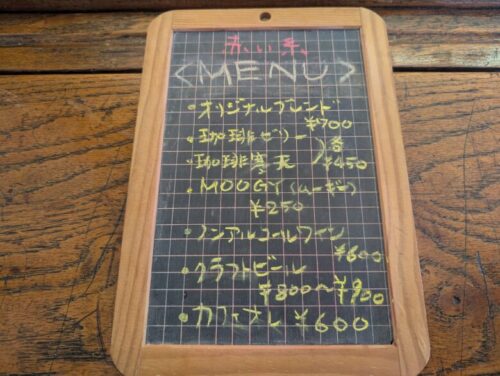 赤い糸
<MENU>
・オリジナルブレンド
¥700
・珈琲ゼリー
・珈琲寒天 )各¥450
・MOOGY(ムーギー)
¥250
・ノンアルコールワイン
¥600
・クラフトビール
¥800〜¥900
・カフェオレ ¥600